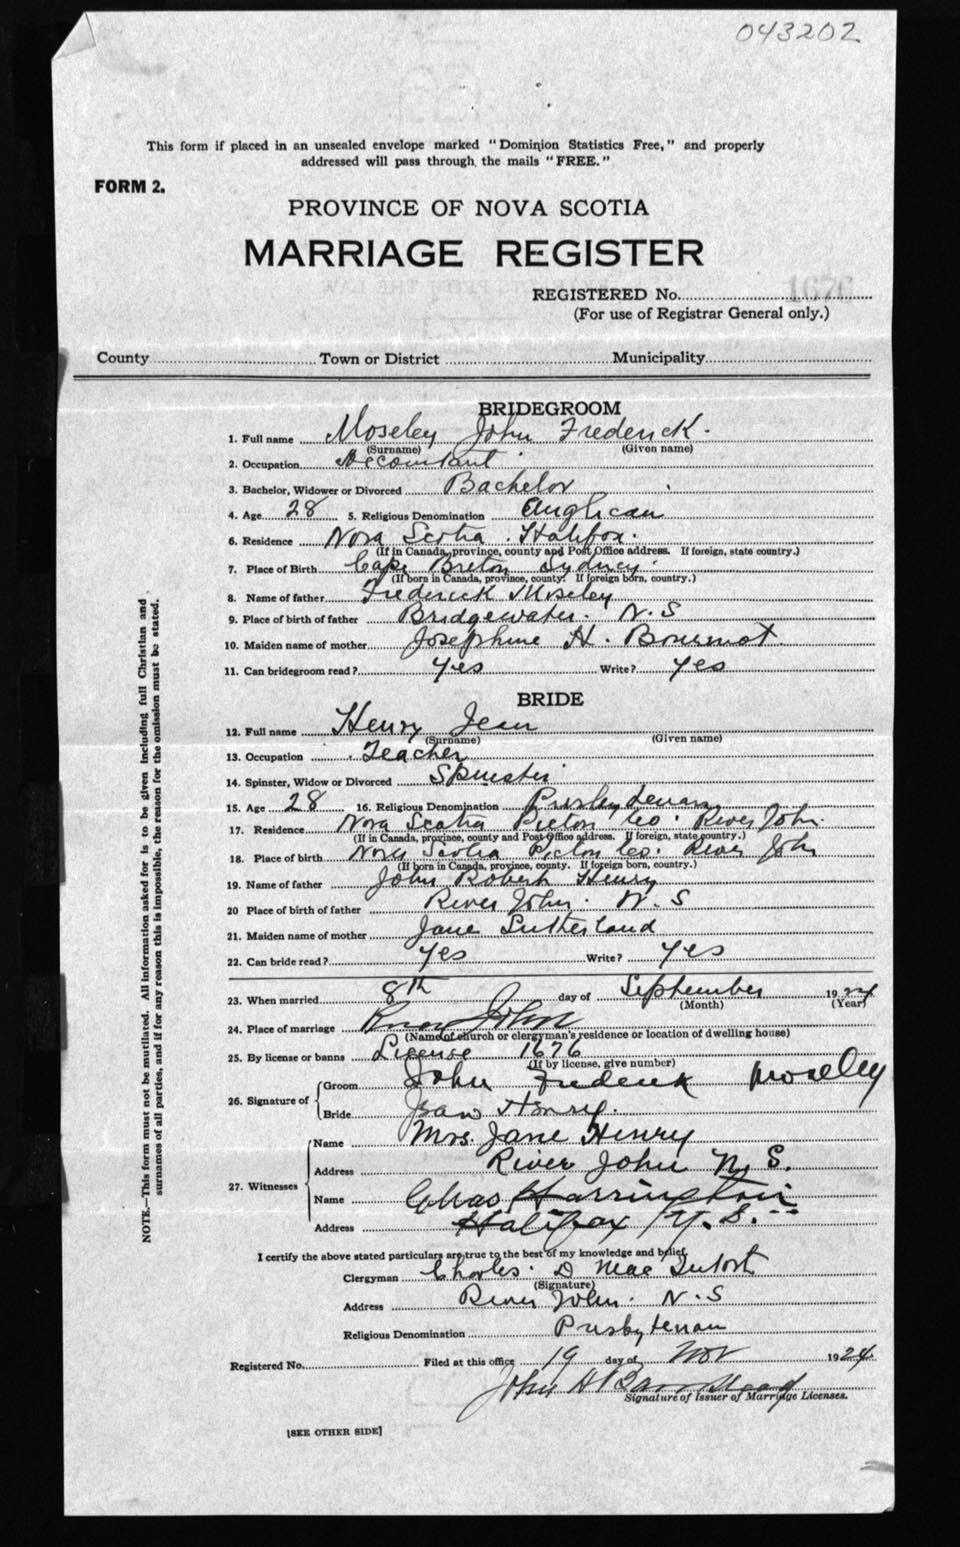 043202
This form if placed in an unsealed envelope marked "Dominion Statistics Free," and properly
addressed will pass through the mails "FREE."
FORM 2.
PROVINCE OF NOVA SCOTIA
MARRIAGE REGISTER
REGISTERED No. 1676
(For use of Registrar General only.)
County Town or District Municipality
BRIDEGROOM
1. Full name Moseley John Frederick.
(Surname) (Given name)
2. Occupation Accountant
3. Bachelor, Widower or Divorced Bachelor
4. Age 28 5. Religious Denomination Anglican
6. Residence Nova Scotia. Halifax.
(If in Canada, province, county and Post Office address. If foreign, state country.)
7. Place of Birth Cape Breton Sydney.
(If born in Canada, province, county. If foreign born, country.)
8. Name of father Frederick Moseley
9. Place of birth of father Bridgewater. N.S
10. Maiden name of mother Josephine H. Bourinot.
11. Can bridegroom read? Yes Write? Yes
BRIDE
12. Full name Henry Jean
(Surname) (Given name)
13. Occupation Teacher
14. Spinster, Widow or Divorced Spinster
15. Age 28 16. Religious Denomination Presbyterian
17. Residence Nova Scotia Pictou Co. River John.
(If in Canada, province, county and Post Office address. If foreign, state country.)
18. Place of birth Nova Scotia Pictou Co. River John
(If born in Canada, province, county. If foreign born, country.)
19. Name of father John Robert Henry
20 Place of birth of father River John. N.S
21. Maiden name of mother Jane Sutherland
22. Can bride read? Yes Write? Yes
23. When married 8th day of September 1924
(Month) (Year)
24. Place of marriage River John
(Name of church or clergyman's residence or location of dwelling house)
25. By license or banns License 1676
(If by license, give number)
26. Signature of Groom John Frederick Moseley
Bride Jean Henry.
27. Witnesses Name Mrs. Jane Henry
Address River John N.S.
Name Chas Harrington
Address Halifax N.S.
I certify the above stated particulars are true to the best of my knowledge and belief.
Clergyman Charles. D Mac
(Signature)
Address River John. N.S
Religious Denomination Presbyterian
Registered No. Filed at this office 19 day of Nov 1924
John H
Signature of Issuer of Marriage Licenses.
[SEE OTHER SIDE]
NOTE.—This form must not be mutilated. All information asked for is to be given including full Christian and
surnames of all parties, and if for any reason this is impossible, the reason for the omission must be stated.